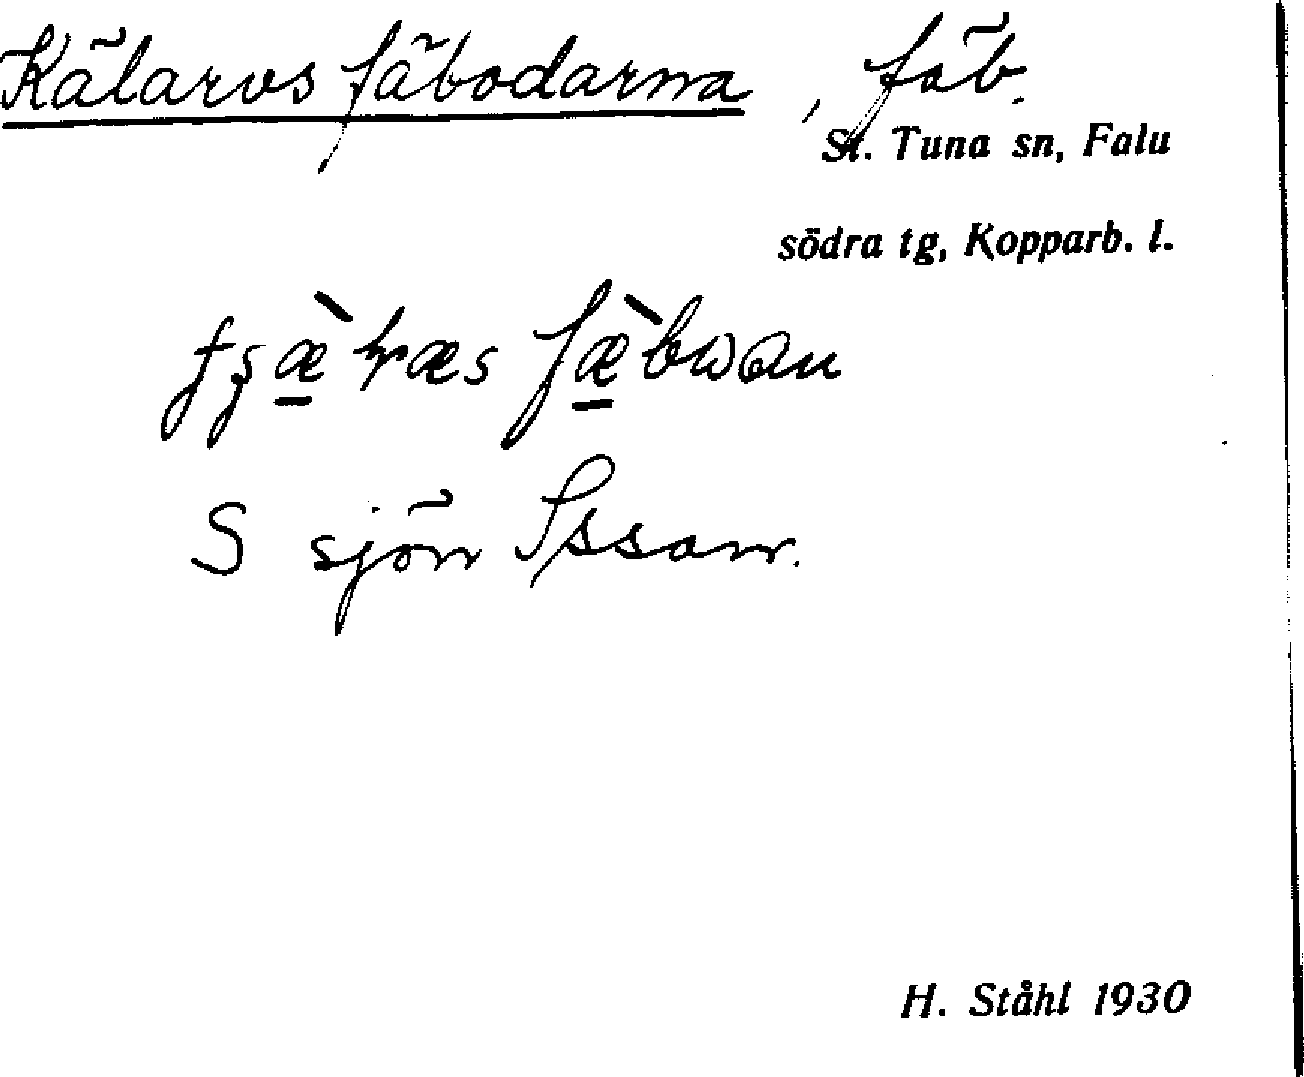 Kälarvs fäbodarna, fäb.
St. Tuna sn, Falu
södra tg, Kopparb. l.
S sjön Ässan.
H. Ståhl 1930